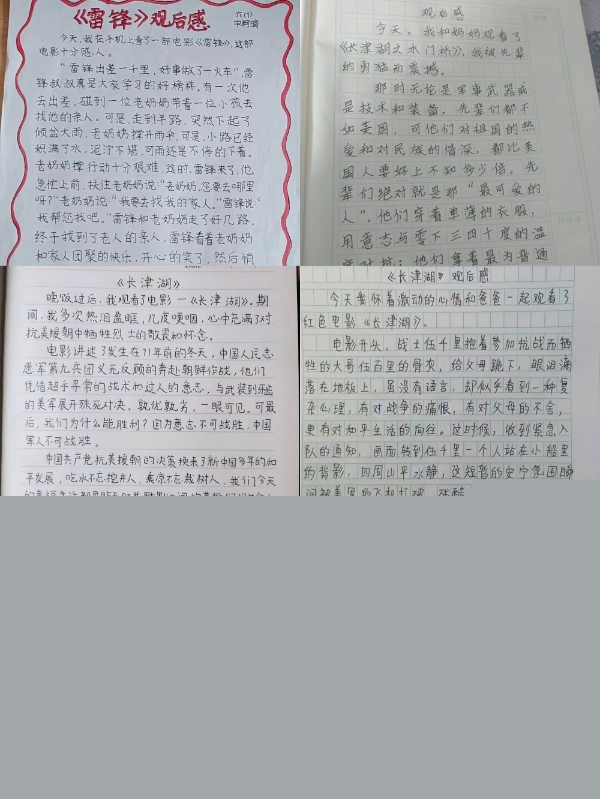 《雷锋》观后感
六(1)
今天,我在手机上看了一部电影《雷锋》,这部
电影十分感人。
"雷锋出差一千里,好事做了一火车"雷
锋叔叔真是大家学习的好榜样,有一次他
去出差,碰到一位老奶奶带着一位小孩去
找他的亲人。可是,走到半路,突然下起了
倾盆大雨,老奶奶撑开雨伞,可是,小路已经
积满了水,泥泞不堪,可雨还是不停的下着。
老奶奶撑行动十分艰难,这时,雷锋来了,他
急忙上前,扶住老奶奶说:"老奶奶,您要去哪里
呀?"老奶奶说:"我要去找我的家人。"雷锋说:"
我帮您找吧。"雷锋和老奶奶走了好几路,
终于找到了老人的亲人,雷锋看着老奶奶
和家人团聚的快乐,开心的笑了,然后悄
观后感
今天,我和妈妈观看了
《长津湖之水门桥》,我被先辈
的勇猛而震撼。
那时无论是军事武器或
是技术和装备,先辈们都不
如美国,可他们对祖国的热
爱和对民族的情深,都比美
国人要好上不知多少倍。先
辈们绝对就是那"最可爱的
人"。他们穿着单薄的衣服,
用意志与零下三四十度的温
度对抗;他们拿着最为普通
《长津湖》
晚饭过后,我观看了电影一《长津湖》。期
间,我多次热泪盈眶,几度哽咽,心中充满了对
抗美援朝中牺牲烈士的敬畏和怀念。
电影讲述了发生在71年前的冬天,中国人民志
愿军第九兵团义无反顾的奔赴朝鲜作战,他们
凭借超乎寻常的战术和过人的意志,与武装到牙齿
的美军展开殊死对决。孰优孰劣,一眼可见。可最
后,我们为什么能胜利?因为意志不可战胜,中国
军人不可战胜。
中国共产党抗美援朝的决策换来了新中国多年的和
平发展,吃水不忘挖井人,乘凉不忘栽树人,我们今天
《长津湖》观后感
今天我怀着激动的心情和爸爸一起观看了
红色电影《长津湖》。
电影开头,战士伍千里抱着参加抗战而牺
牲的大哥伍百里的骨灰,给父母跪下,眼泪滴
落在地板上,虽没有语言,却似乎看到一种复
杂心理,有对战争的痛恨,有对父母的不舍,
更有对和平生活的向往。这时候,收到紧急入
队的通知,画面转到伍千里一个人站在小船里
的背影,四周山平水静,这短暂的安宁氛围瞬
间被美军的飞机打破